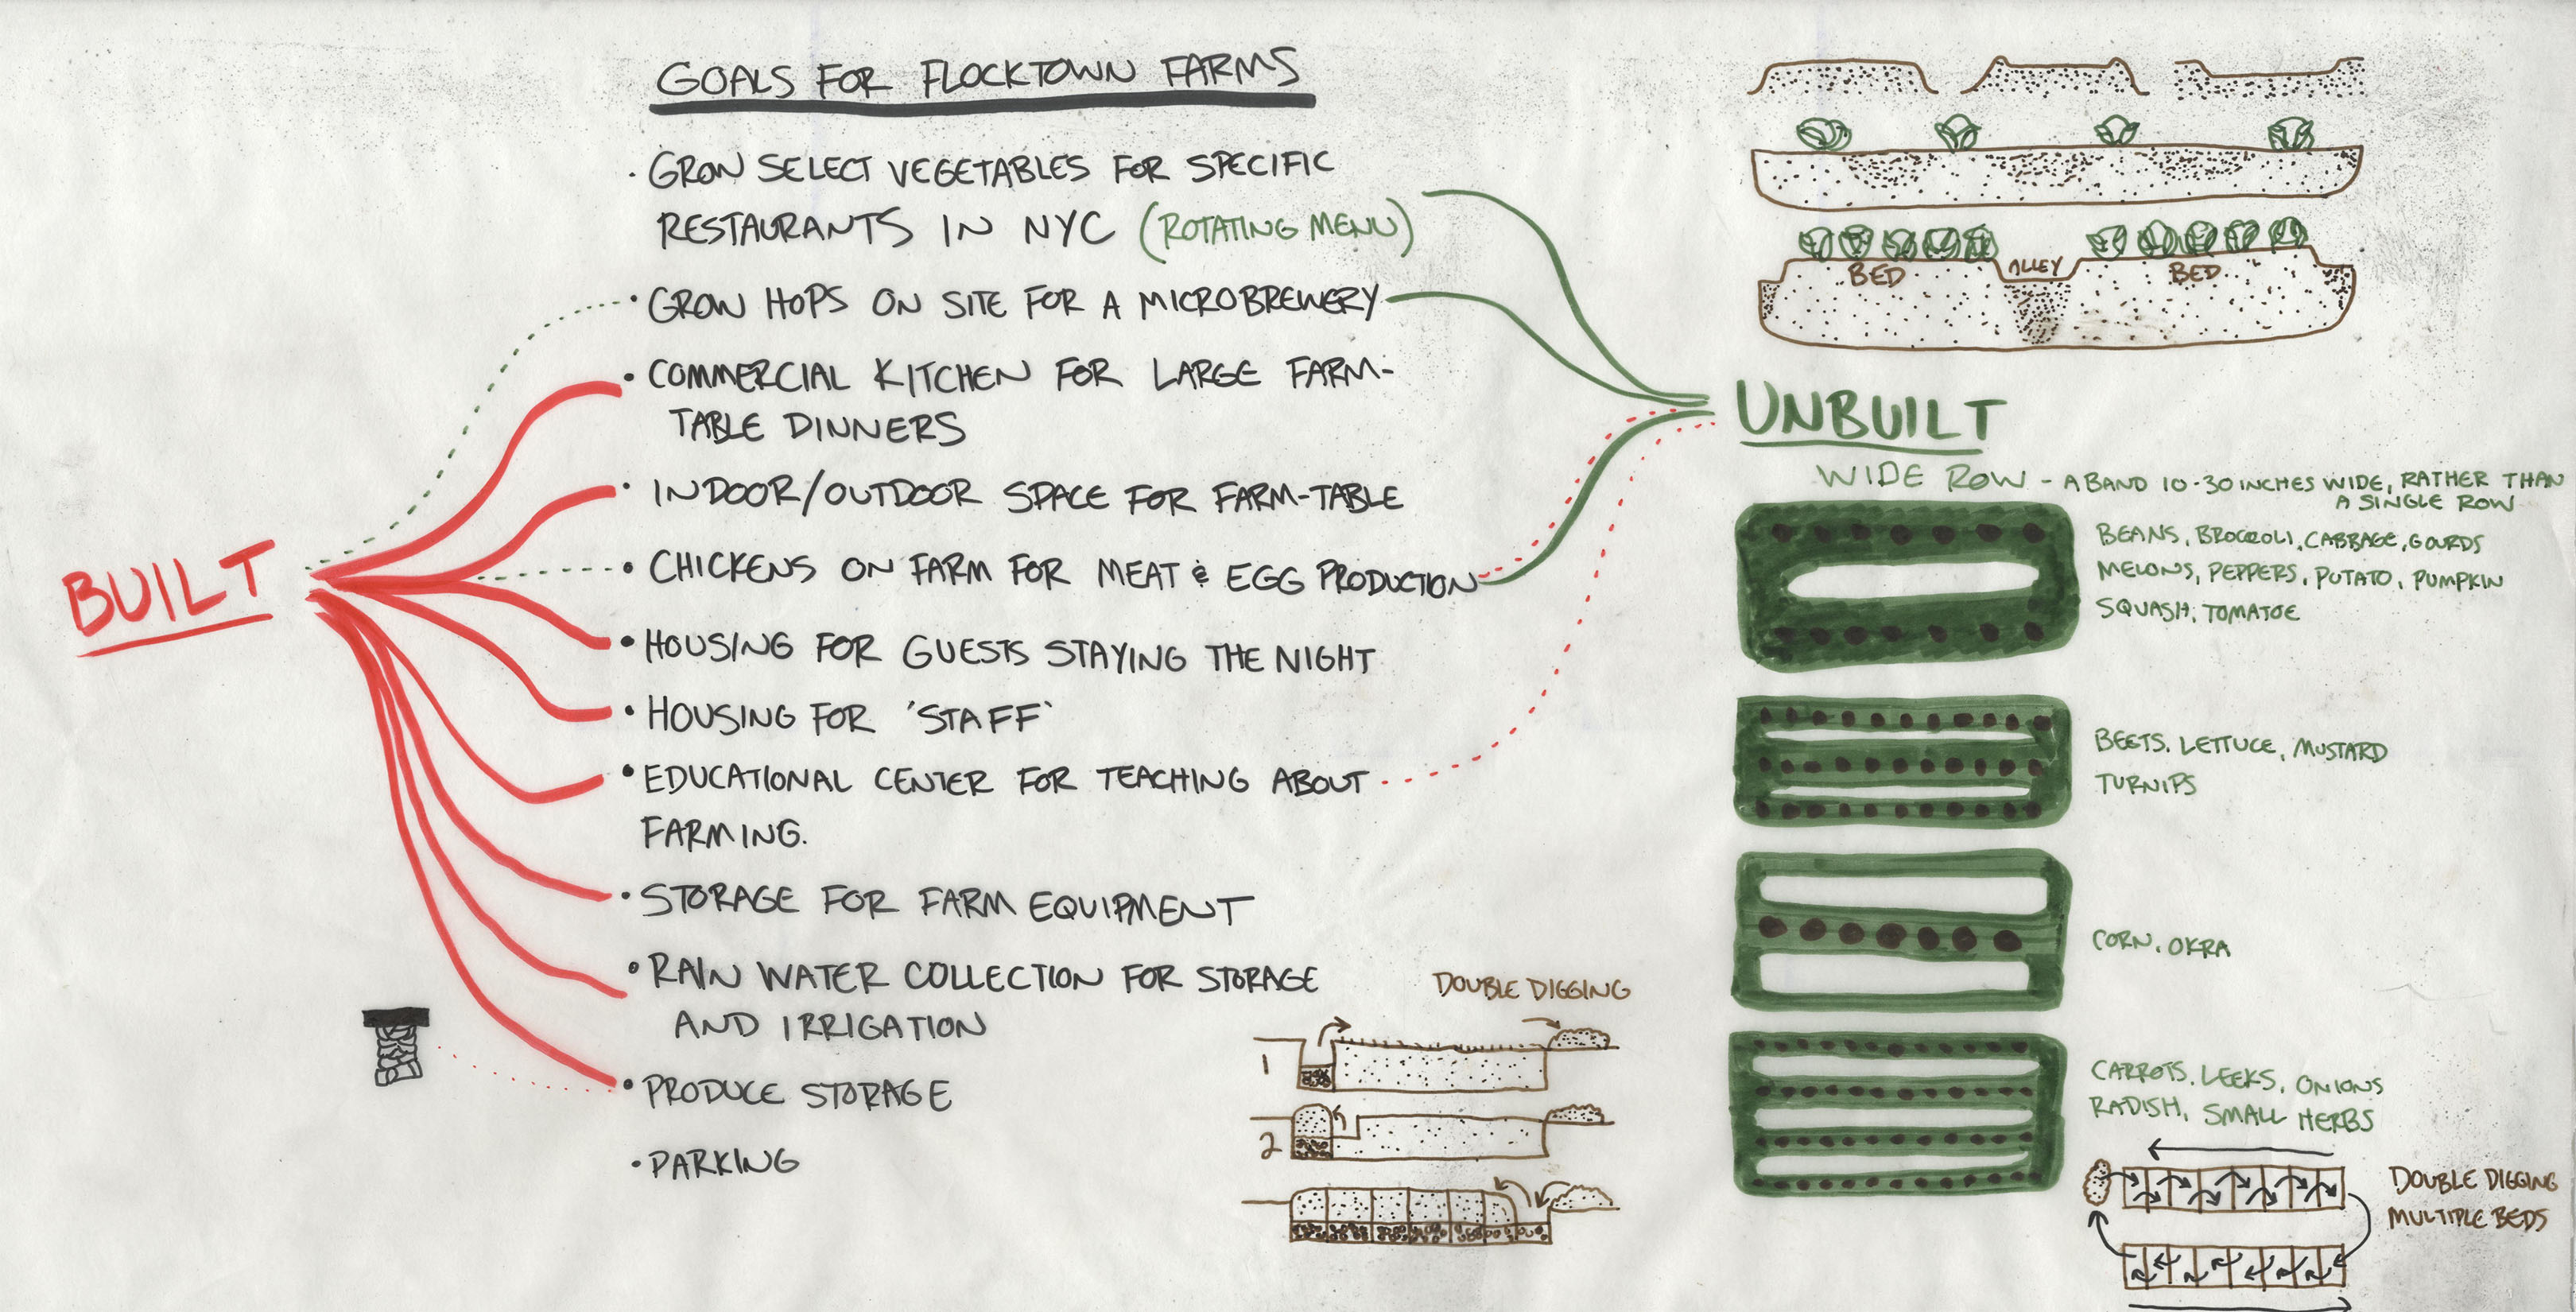 GOALS FOR FLOCKTOWN FARMS
· GROW SELECT VEGETABLES FOR SPECIFIC
RESTAURANTS IN NYC (ROTATING MENU)
· GROW HOPS ON SITE FOR A MICROBREWERY
· COMMERCIAL KITCHEN FOR LARGE FARM-
TABLE DINNERS
· INDOOR/OUTDOOR SPACE FOR FARM-TABLE
· CHICKENS ON FARM FOR MEAT & EGG PRODUCTION
· HOUSING FOR GUESTS STAYING THE NIGHT
· HOUSING FOR 'STAFF'
· EDUCATIONAL CENTER FOR TEACHING ABOUT
FARMING.
· STORAGE FOR FARM EQUIPMENT
· RAIN WATER COLLECTION FOR STORAGE
AND IRRIGATION
· PRODUCE STORAGE
· PARKING
BUILT
DOUBLE DIGGING
1
2
BED ALLEY BED
UNBUILT
WIDE ROW - A BAND 10-30 INCHES WIDE, RATHER THAN
A SINGLE ROW
BEANS, BROCCOLI, CABBAGE, GOURDS
MELONS, PEPPERS, POTATO, PUMPKIN
SQUASH, TOMATOE
BEETS, LETTUCE, MUSTARD
TURNIPS
CORN, OKRA
CARROTS, LEEKS, ONIONS
RADISH, SMALL HERBS
DOUBLE DIGGING
MULTIPLE BEDS